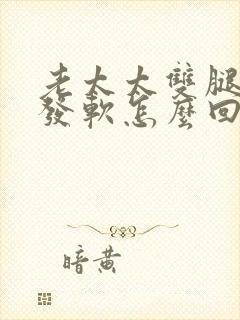 老太太雙腿
發軟怎麼回
暗黄